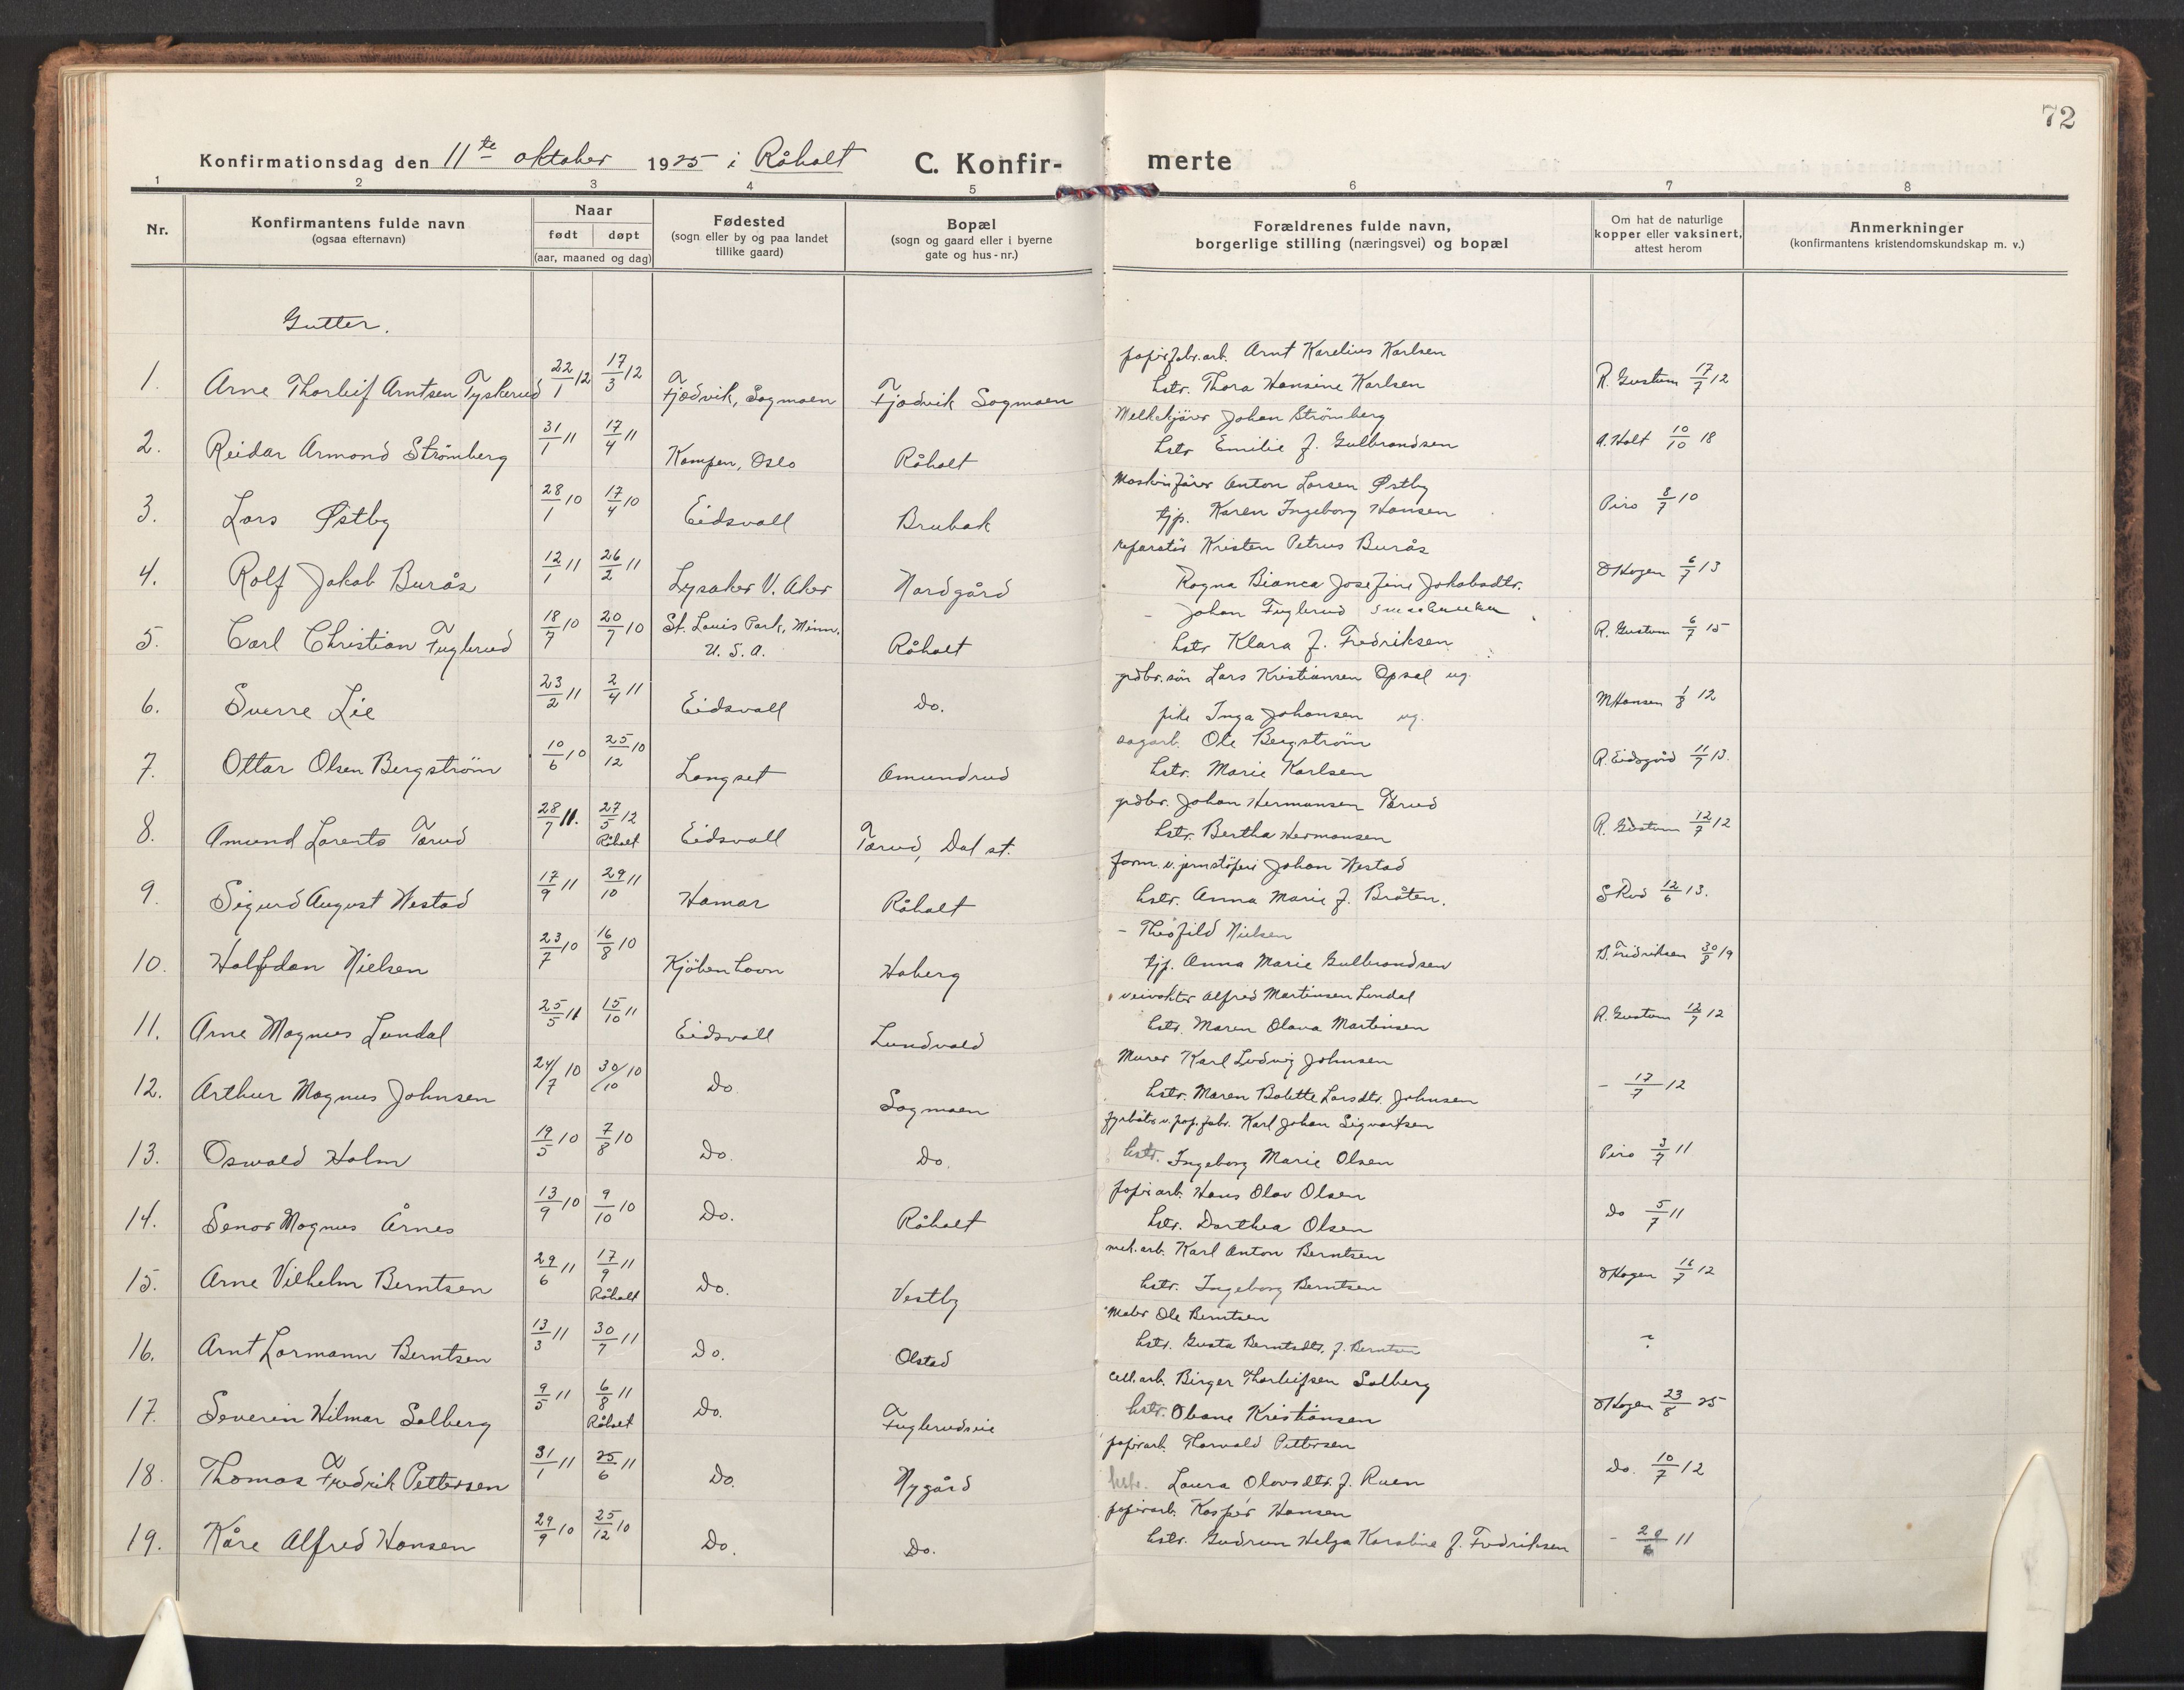 72
Konfirmationsdag den 11te oktober 1925 i Råholt C. Konfir- merte
1 2 3 4 5 6 7 8
Nr.
Konfirmantens fulde navn
(ogsaa efternavn)
Naar
født døpt
(aar, maaned og dag)
Fødested
(sogn eller by og paa landet
tillike gaard)
Bopæl
(sogn og gaard eller i byerne
gate og hus-nr.)
Forældrenes fulde navn,
borgerlige stilling (næringsvei) og bopæl
Om hat de naturlige
kopper eller vaksinert,
attest herom
Anmerkninger
(konfirmantens kristendomskundskap m. v.)
Gutter.
papirfabr.arb. Arnt Karelius Karlsen
1. Arne Thorleif Arntsen Tyskerud 22/1 12 17/3 12 Fjødvik, Sagmoen Fjødvik Sagmoen hstr. Thora Hansine Karlsen R. Gustum 17/7 12
Melkekjører Johan Strömberg
2. Reidar Armond Strömberg 31/1 11 17/4 11 Kampen, Oslo Råholt hstr Emilie f. Gulbrandsen A. Holt 10/10 18
Maskinfører Anton Larsen Østby
3. Lars Østby 28/1 10 17/4 10 Eidsvoll Brubak tjp. Karen Ingeborg Hansen Piro 8/7 10
reparatør Kristen Petrus Burås
4. Rolf Jakob Burås 12/1 11 26/2 11 Lysaker V. Aker Nordgård Ragna Bianca Josefine Jakobsdtr. O Hogen 6/7 13
- Johan Fuglerud
5. Carl Christian Fuglerud 18/7 10 20/7 10 St. Louis Park, Minn. U. S. A. Råholt hstr Klara f. Fredriksen R. Gustum 6/7 15
grdbr. søn Lars Kristiansen Opsal ug.
6. Sverre Lie 23/2 11 2/4 11 Eidsvoll Do. pike Inga Johansen ug. M Hansen 1/8 12
sagarb. Ole Bergström
7. Ottar Olsen Bergström 10/6 10 25/12 10 Langset Amundrud hstr. Marie Karlsen R. Eidsgård 11/7 13.
grdbr. Johan Hermansen Tørud
8. Amund Lorents Tørud 28/7 11. 27/5 12 Råholt Eidsvoll Tørud, Dal st. hstr. Bertha Hermansen R. Gustum 12/7 12
form. v. jernstøperi Johan Nestad
9. Sigurd August Nestad 17/9 11 29/10 11 Hamar Råholt hstr. Anna Marie f. Bråten. S Rud 12/6 13.
- Theofild Nielsen
10. Halfdan Nielsen 23/7 10 16/8 10 Kjöbenhavn Haberg tjp. Anna Marie Gulbrandsen B. Fridriksen 30/8 19
veivokter Alfred Martinsen Lundal
11. Arne Magnus Lundal 25/5 11 15/10 11 Eidsvoll Lundvold hstr. Maren Olava Martinsen R. Gustum 12/7 12
Murer Karl Ludvig Johnsen
12. Arthur Magnus Johnsen 24/7 10 30/10 10 Do. Sagmoen hstr. Maren Bolette Larsdtr. Johnsen - 17/7 12
fyrbøter v. pap.fabr. Karl Johan Sigvartsen
13. Oswald Holm 19/5 10 7/8 10 Do. Do. hstr. Ingeborg Marie Olsen Piro 3/7 11
papirarb. Hans Olav Olsen
14. Senor Magnus Årnes 13/9 10 9/10 10 Do. Råholt hstr. Dorthea Olsen Do 5/7 11
mek. arb. Karl Anton Berntsen
15. Arne Vilhelm Berntsen 29/6 11 17/9 11 Råholt Do. Vestby hstr. Ingeborg Berntsen O Hogen 16/7 12
Maler Ole Berntsen
16. Arnt Lormann Berntsen 13/3 11 30/7 11 Do. Olstad hstr. Gusta Berntsdtr. f. Berntsen ?
cell.arb. Birger Thorleifsen Solberg
17. Severin Hilmar Solberg 9/5 11 6/8 11 Råholt Do. Fuglerudseie hstr. Obane Kristiansen O Hogen 23/8 25
papirarb. Thorvald Pettersen
18. Thomas Fredrik Pettersen 31/1 11 25/6 11 Do. Nygård hstr. Laura Olavsdtr. f. Ruen Do. 10/7 12
papirarb. Kaspér Hansen
19. Kåre Alfred Hansen 29/9 10 25/12 10 Do. Do. hstr. Gudrun Helga Karoline f. Fredriksen - 20/6 11